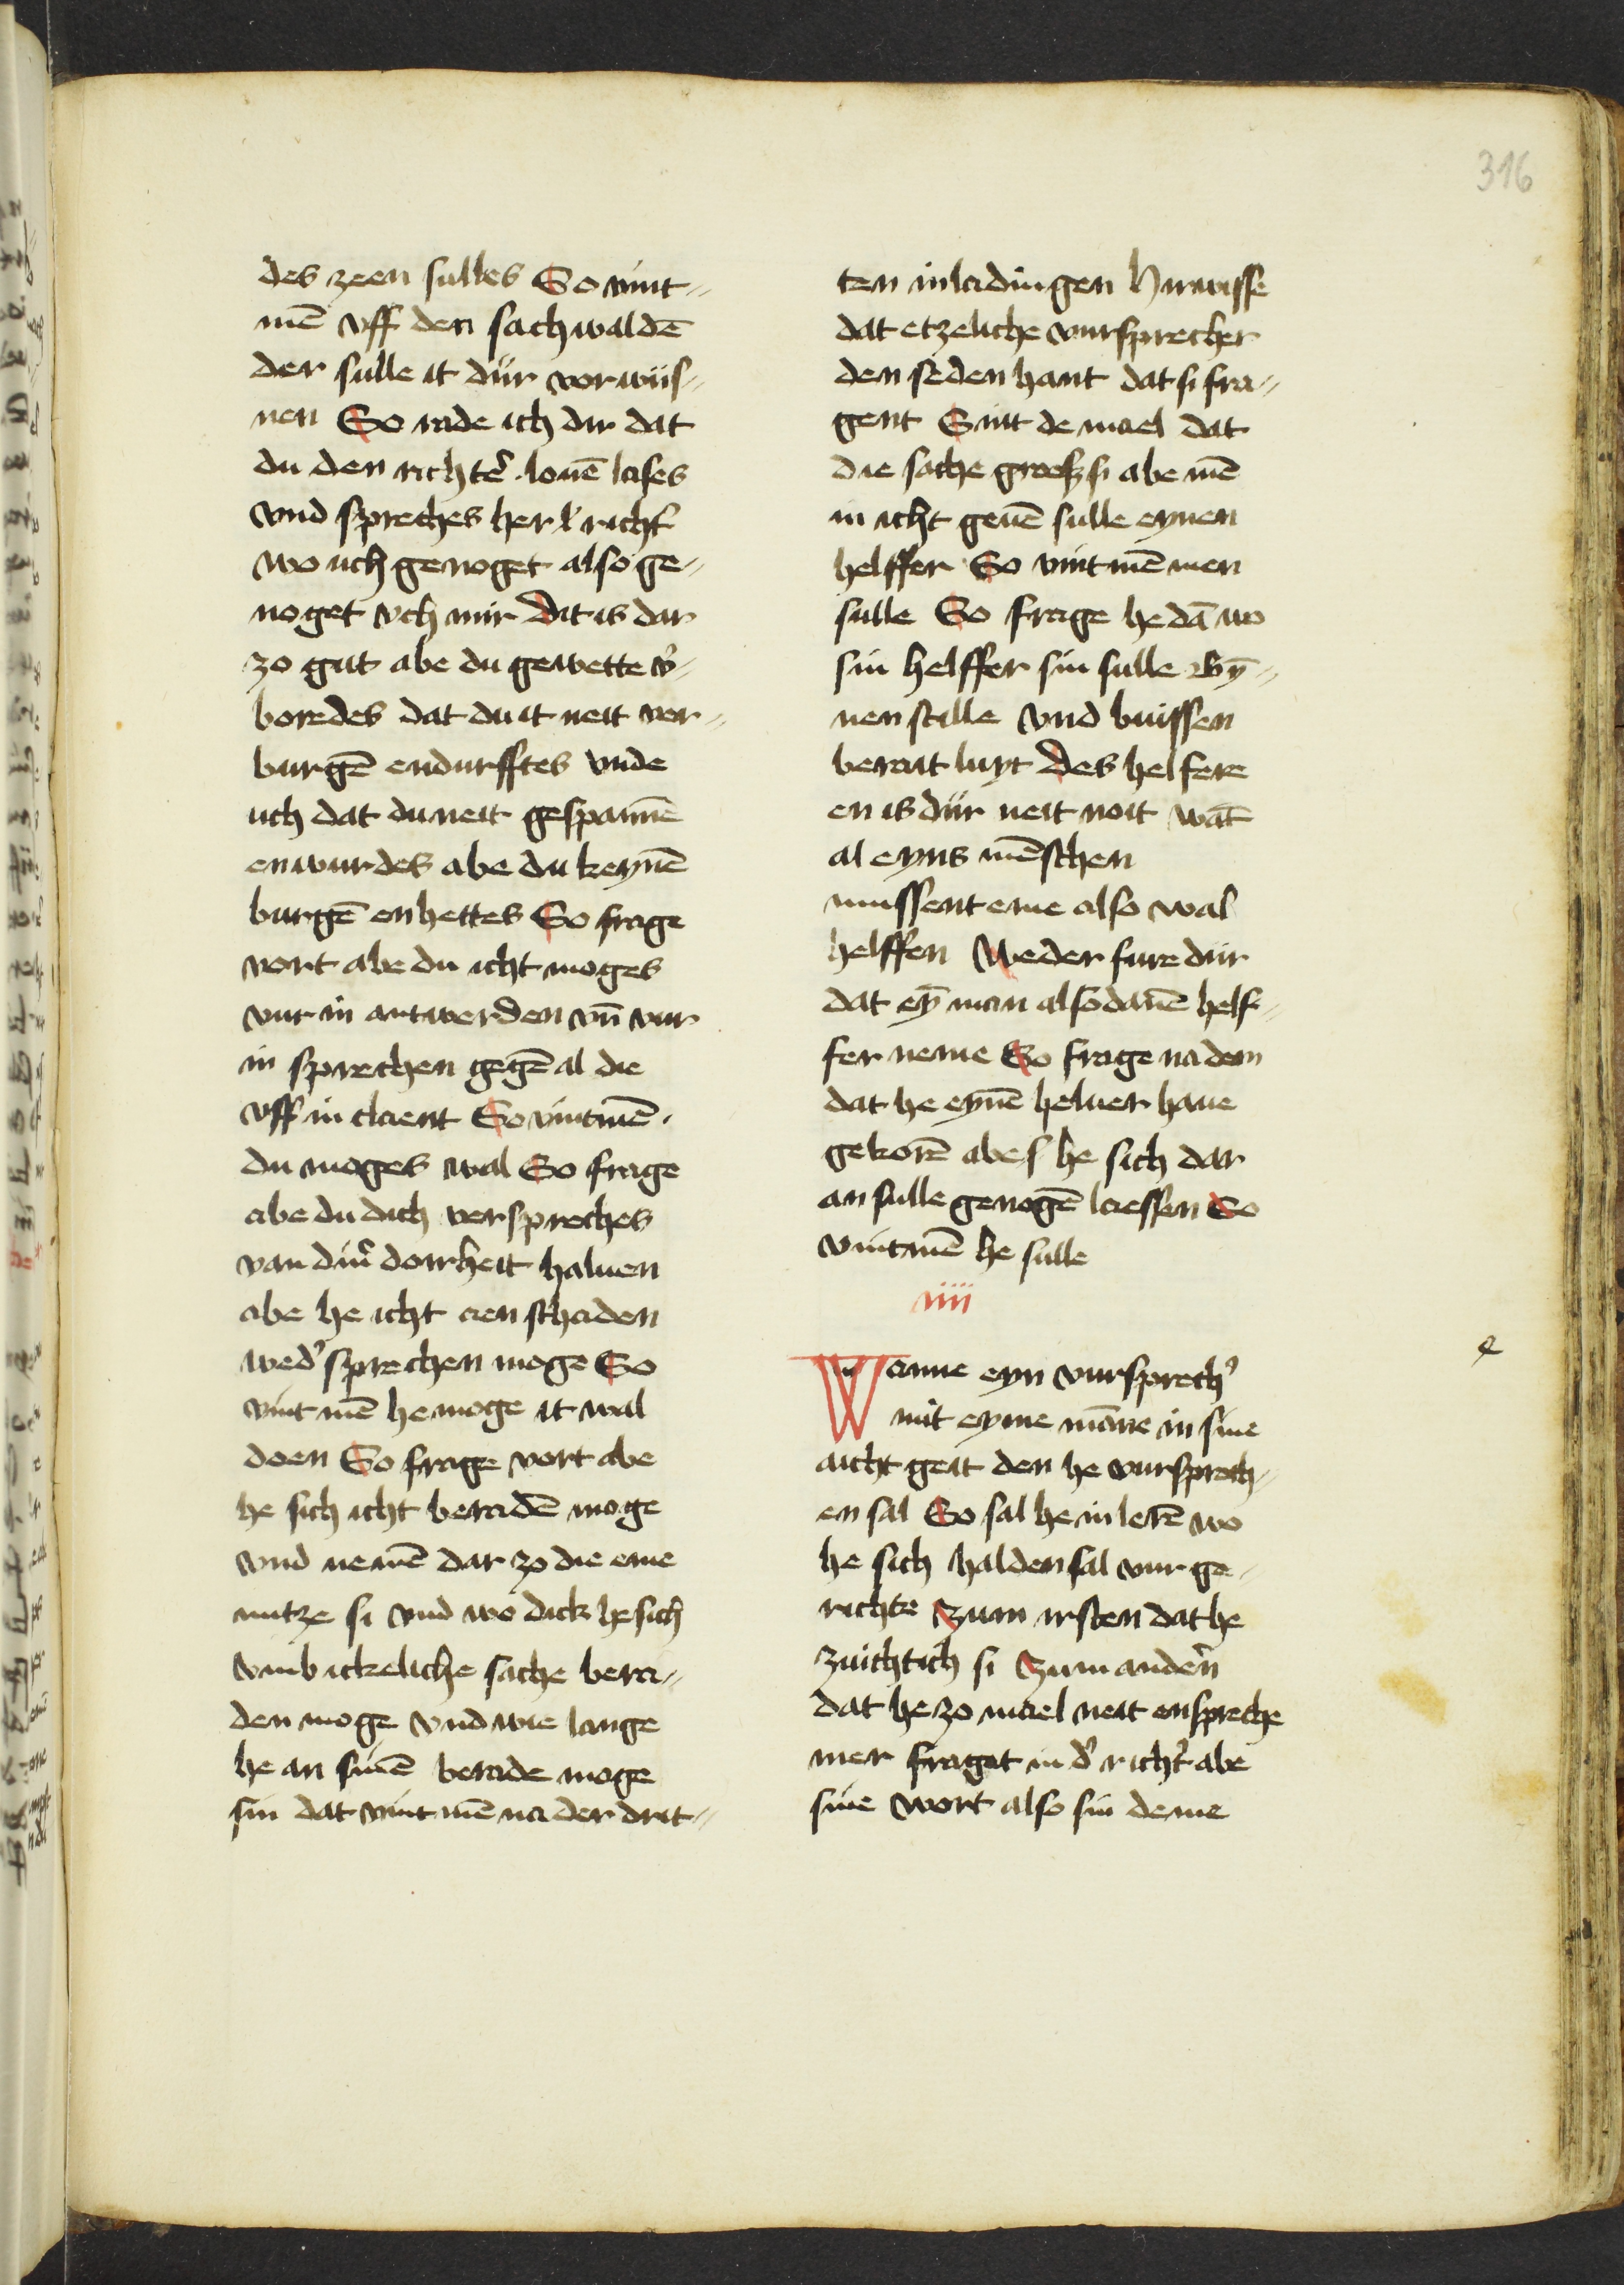 316
des zeen sulles So vint-
mē vff den sachwaldē
der sulle it dür vorwiis-
nen So rade ich dir dat
du den richtē louē lases
vnd spreches her her richt'
wo uch genoget also ge-
noget vch mir Dit is dar
zo gut abe du gewette v'-
boredes dat du it neit ver-
burgē endurfftes vnde
uch dat du neit gespannē
enwurdes abe du keynē
burgē enhettes So frage
vort abe du icht moges
vur in antwerden vn̄ vur
in sprechen gegē al die
vff in claent So vintmē
du moges wal So frage
abe du dich verspreches
van din' dorrheit haluen
abe he icht aen schaden
wed' sprechen moge So
vint mē he moge it wal
doen So frage vort abe
he sich icht beradē moge
vnd nemē dar zo die eme
nutze si vnd wo dick he sich
vmb ickeliche sache bera-
den moge vnd wie lange
he an sinē berade moge
sin dat vint mē na der drit-
ten inladingen Hir wisse
dat etzeliche vursprecher
den seden hant dat si fra-
gent Sint de mael dat
die sache groesz si abe mē
in icht geuē sulle eynen
helffer So vint mē men
sulle So frage he dā wo
sin helffer sin sulle By-
nen stille vnd buissen
berait luyt Des helfere
en is dür neit noit wāt
al eyns mēschen
mussent eme also wal
helffen Weder fure dür
dat eȳ man alsodanē helf-
fer neme So frage na dem
dat he eynē heluer haue
gekorē abe he sich dar
an sulle genogē laessen So
vintmē he sulle
iiii
Wanne eyn vursprech'
mit eyme māne in sine
aicht geit den he vursprech-
en sal So sal he in lerē wo
he sich halden sal vur ge-
richte Zum irsten dat he
zuichtich si Zum andern
dat he zo mael neit enspreche
mer fraget in d' richt' abe
sine wort also sin deme